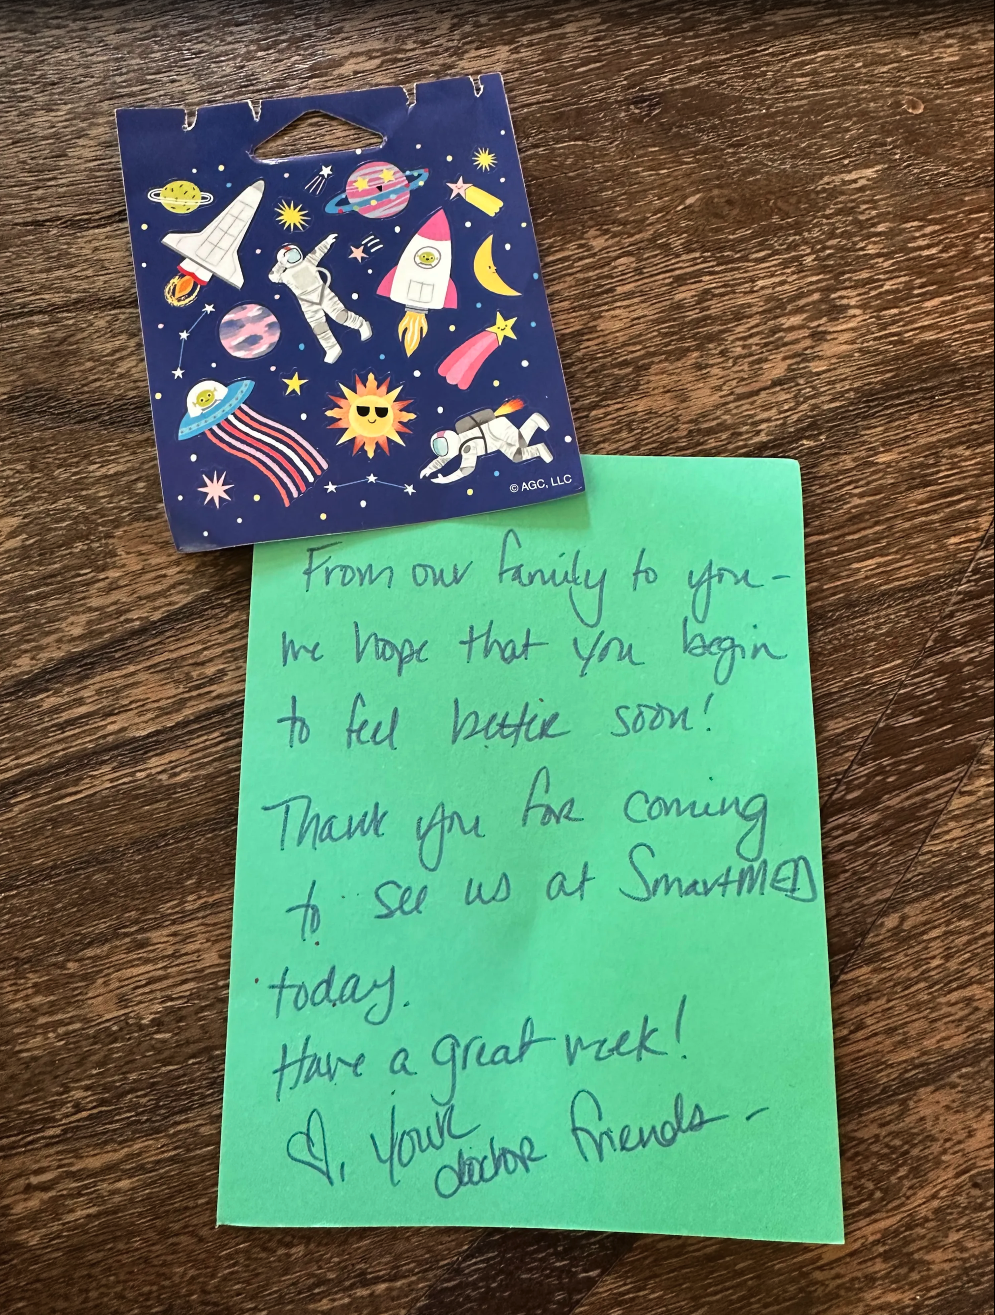 © AGC, LLC
From our family to you -
we hope that you begin
to feel better soon!
Thank you for coming
to see us at SmartMED
today.
Have a great week!
♡, your
doctor friends -